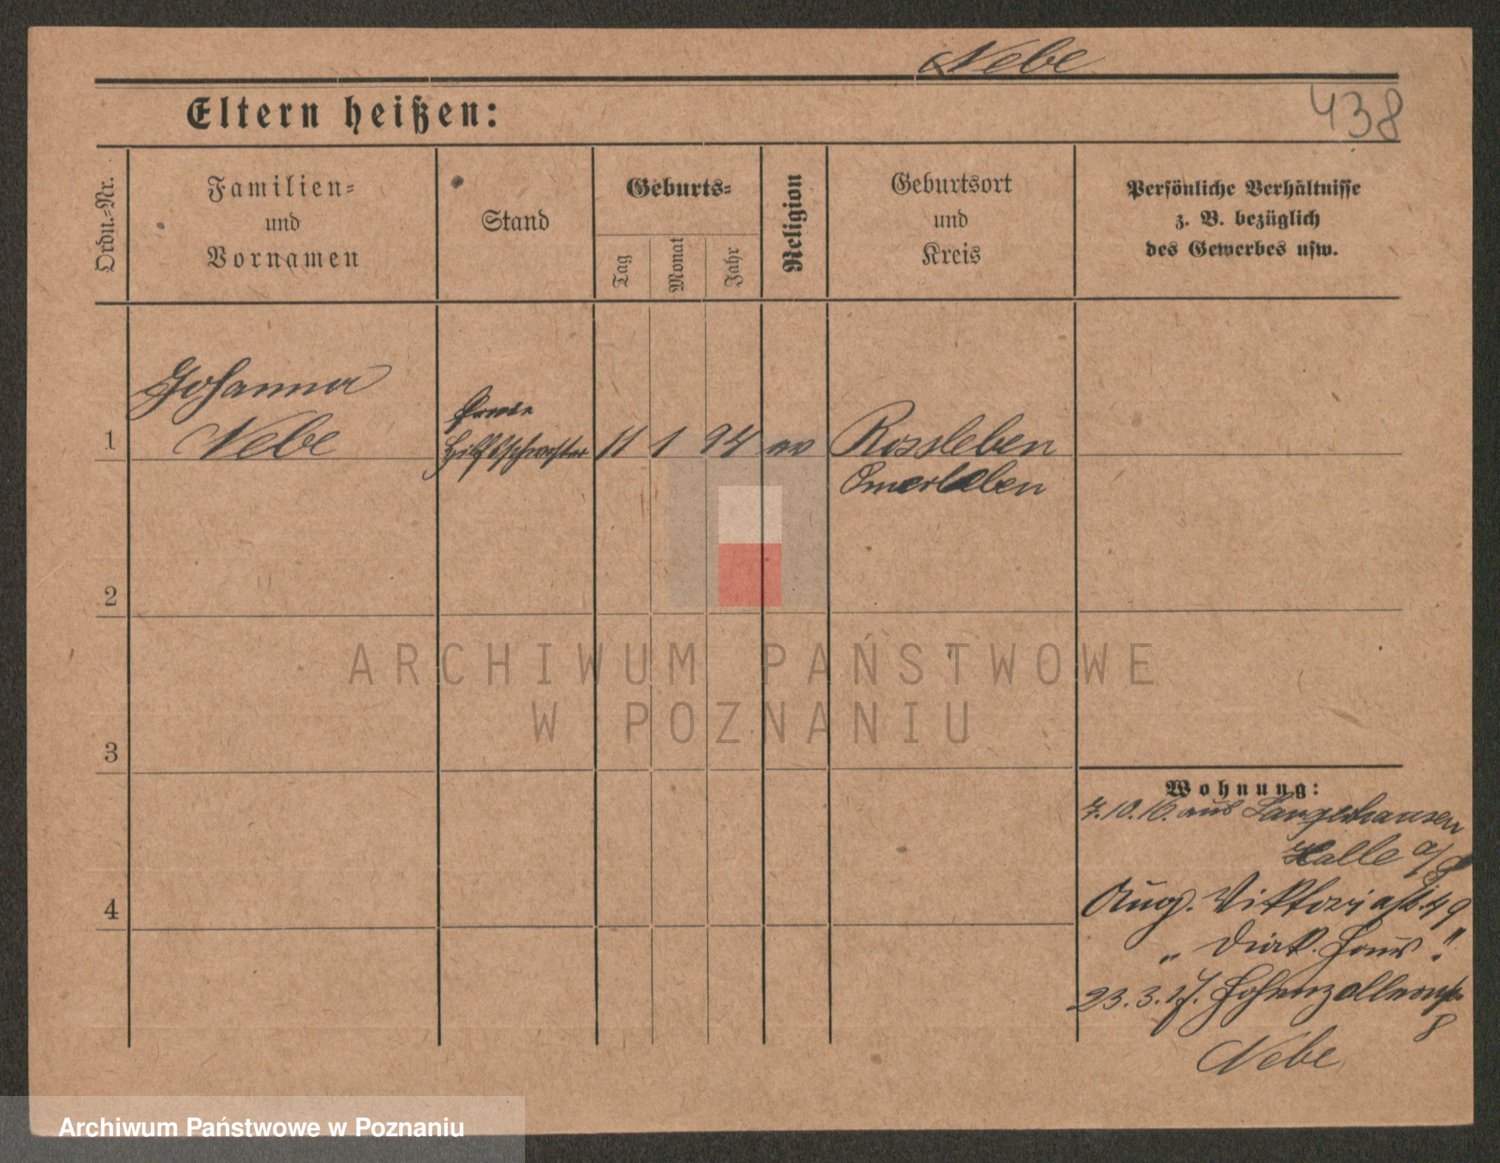 Nebe
Eltern heißen:
438
Ordn.-Nr.
Familien-
und
Vornamen
Stand
Geburts-
Tag
Monat
Jahr
Religion
Geburtsort
und
Kreis
Persönliche Verhältnisse
z. B. bezüglich
des Gewerbes usw.
Johanna
1 Nebe
Hilfsschwester
11 1 94 ev
Rossleben
2
3
4
ARCHIWUM PAŃSTWOWE
W POZNANIU
Wohnung:
7.10.16. aus
Halle a/S
Aug. Viktoriastr. 49
„ Diak. Haus "
23.3.17. Hohenzollernstr.
8
Nebe
Archiwum Państwowe w Poznaniu